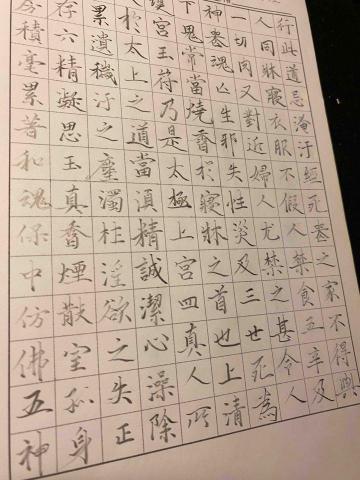 行此道忌淹汙經死喪之家不得與
人同牀寢衣服不假人禁食五辛及
一切肉又對近婦人尤禁之甚令人
神喪魂亡生邪失性災及三世死為
下鬼常當燒香於寢牀之首也上清
宮玉符乃是太極上宮四真人所
於太上之道當須精誠潔心澡除
累遺穢汙之塵濁柱淫欲之失正
存六精凝思玉真香煙散室孤身
積毫累著和魂保中仿佛五神